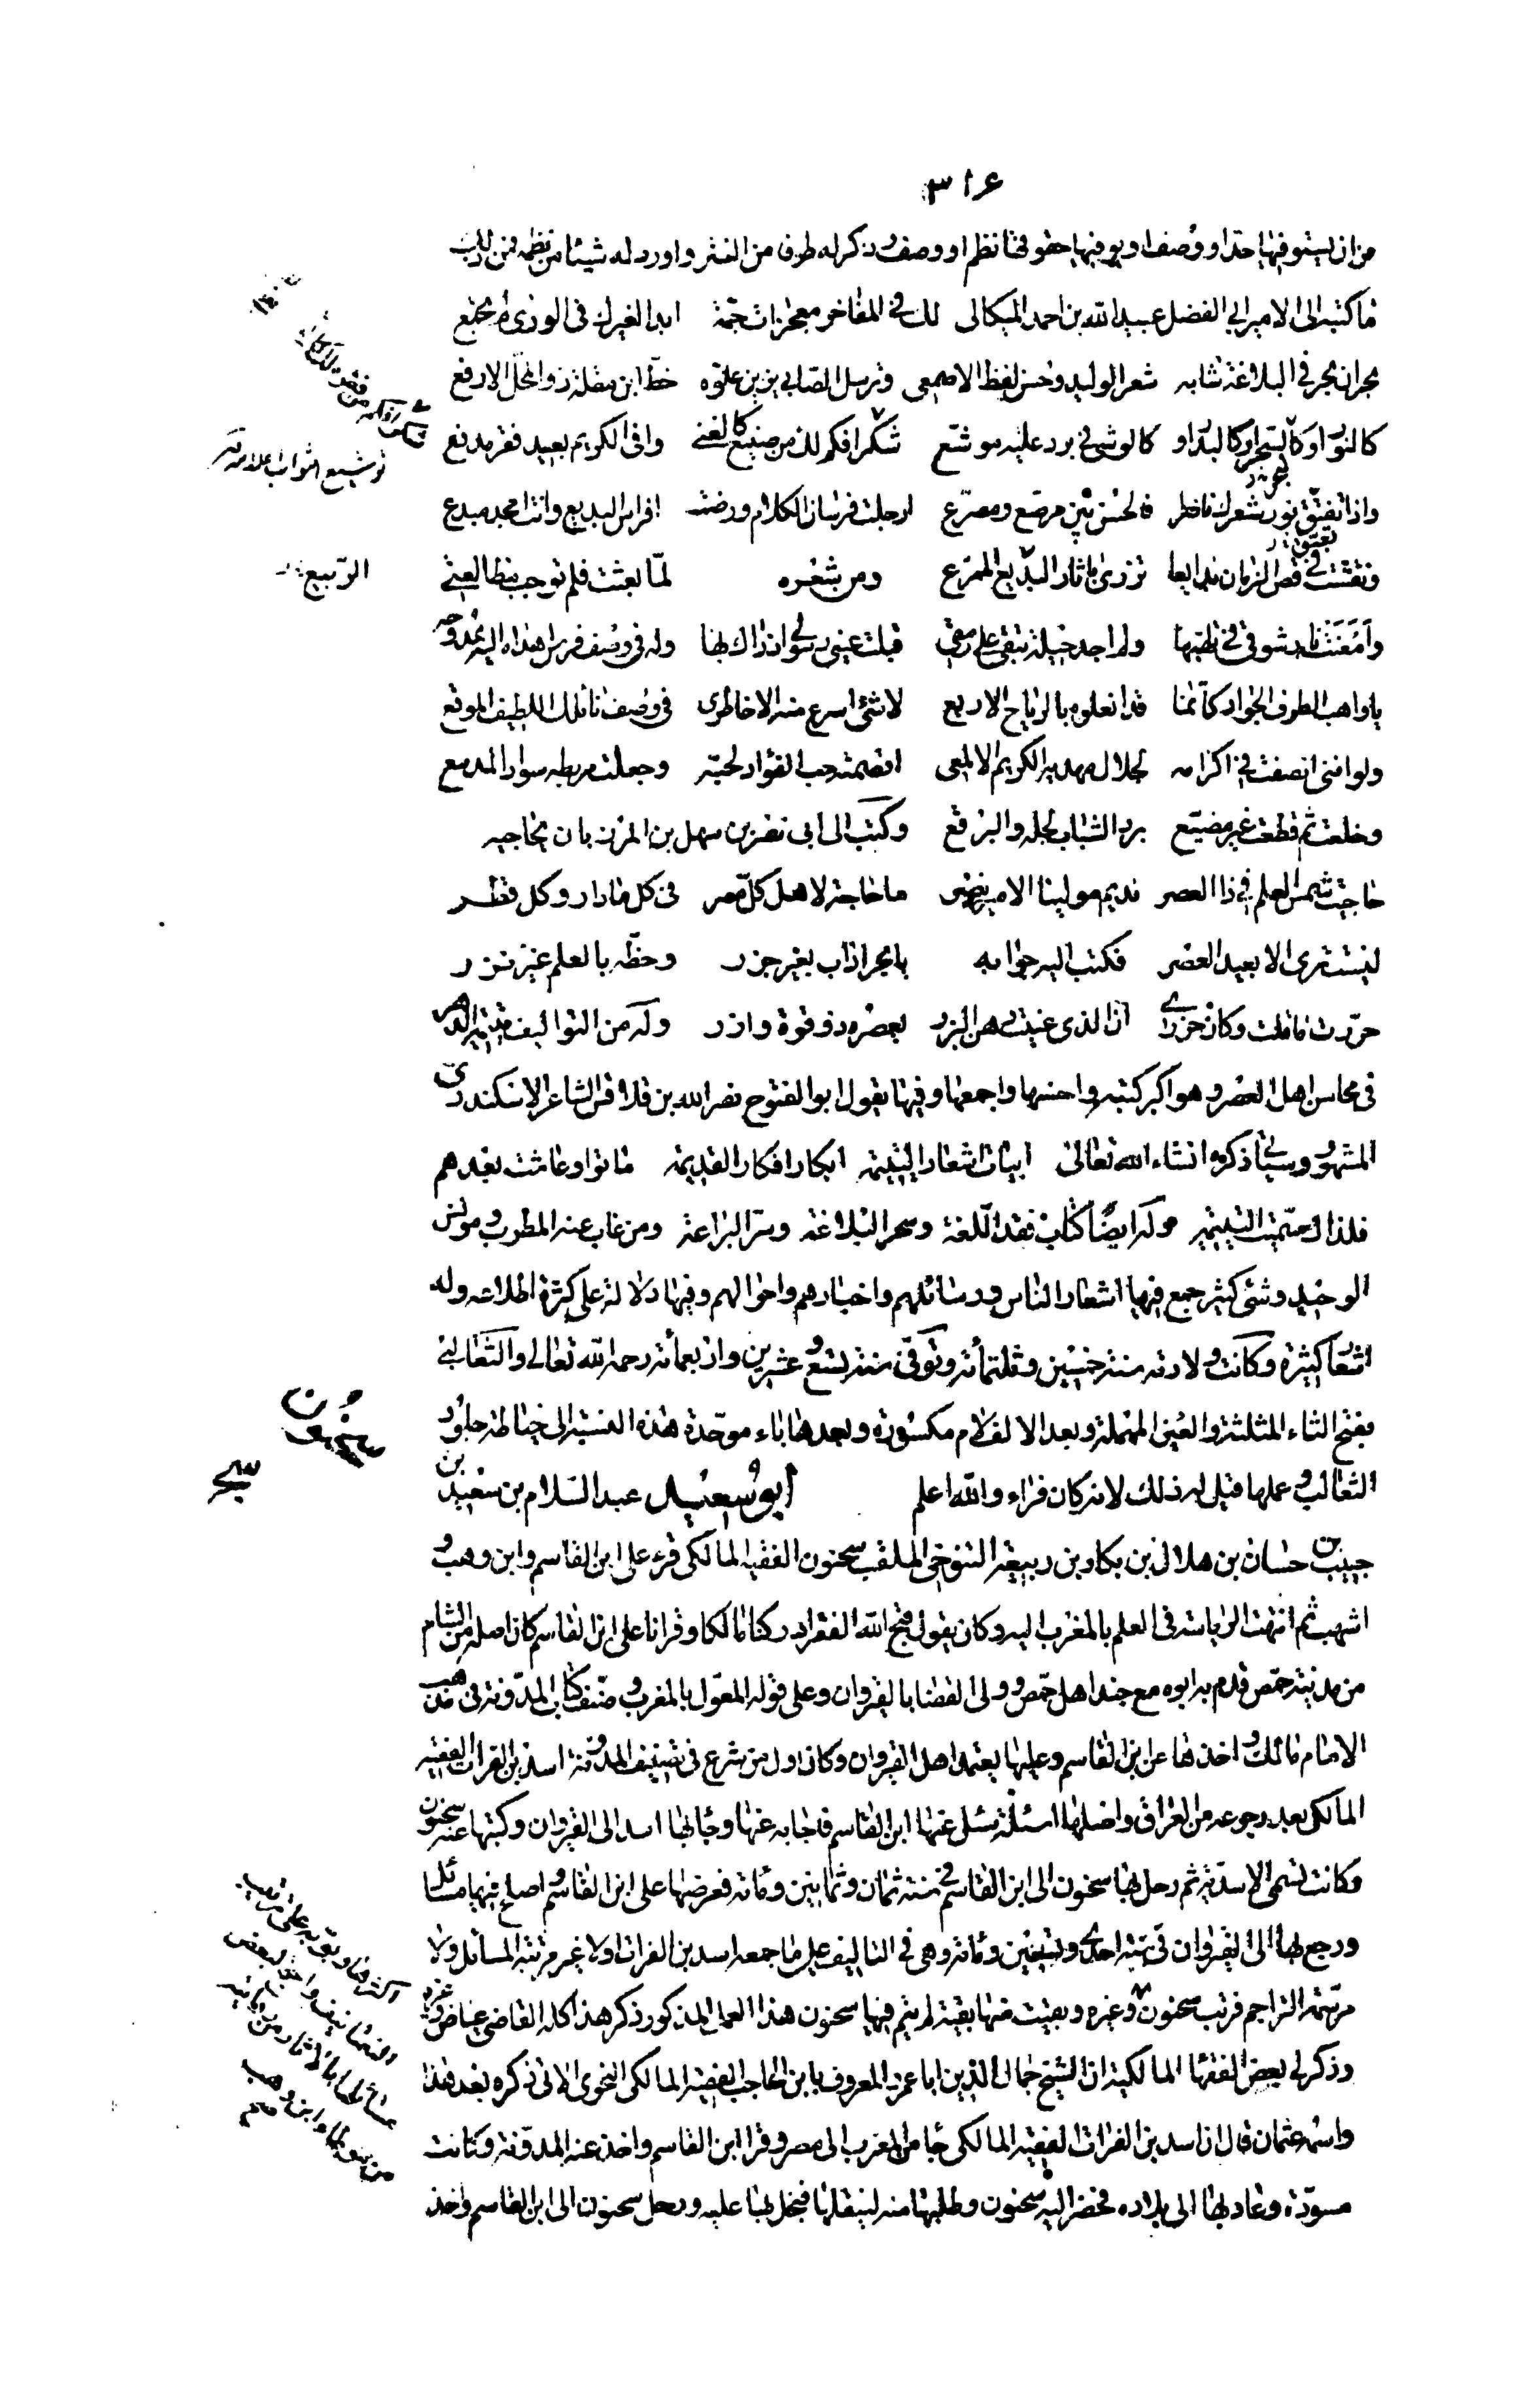 ٣١٤
من ان يستوفيها حد او وصف او يوفيها حقوقها نظم او وصف ذكر له طرف من النثر و اورد له شيئا من نظمه فمن ذلك
ما كتبه الى الامير ابي الفضل عبيد الله بن احمد الميكالى لك فى المفاخر معجزات جمة ابدا لغيرك فى الورى لم تجمع
بحران بحر فى البلاغة شابه شعر الوليد و حسن لفظ الاصمعى وترسل الصابى يزين علوه خط ابن مقلة ذو المحل الارفع
كالنور او كالسحر او كالبدر او كالوشى فى برد عليه موشع شكرا فكم لك من كالغنى وافى الكريم بعيد فقر مدقع
واذا تفتق نور شعرك ناضرا فالحسن بين مرصع ومصرع ارجلت فرسان الكلام ورضت افراس البديع وانت امجد مبدع
ونقشت فى فص الزمان بدايعا تزرى باثار البديع الممرع ومن شعره لما بعثت فلم توجب مطالعتى
وامعنت نار شوقى فى تلهبها ولم اجد حيلة تبقى على رمقى قبلت عينى رسولى اذ راك بها وله فى وصف فرس اهداه اليه ممدوحه
يا واهب الطرف الجواد كانما قد انعلوه بالرياح الاربع لا شئ اسرع منه الا خاطرى فى وصف نائلك اللطيف الموقع
ولو اننى انصفت فى اكرامه لجلال مهديه الكريم الالمعى اقضمته حب الفؤاد لحبه وجعلت مربطه سواد المدمع
وخلعت ثم قطعت غير مضيع برد الشباب لجله والبرقع وكتب الى ابى نصر بن سهل بن المرزبان يحاجيه
حاجيت شمس العلم فى ذا العصر نديم مولينا الامير نصر ما حاجة لاهل كل مصر فى كل ما دار وكل قطر
ليست ترى الا بعيد العصر فكتب اليه جوابه يا بحر اداب بغير جزر وحظه بالعلم غير نزر
حزرت ما قلت وكان حزرى ان الذى عنيت دهن البزر يعصره ذو قوة وازر وله من التواليف يتيمة الدهر
فى محاسن اهل العصر و هو اكبر كتبه واحسنها واجمعها وفيها يقول ابو الفتوح نصر الله بن قلاقس الشاعر الاسكندرى
المشهور وسيأتى ذكره انشاء الله تعالى ابيات اشعار اليتيمة ابكار افكار القديمة ماتوا وعاشت بعدهم
فلذاك سميت اليتيمة وله ايضا كتاب فقه اللغة وسحر البلاغة وسر البراعة ومن غاب عنه المطرب ومونس
الوحيد وشئ كثير جمع فيها اشعار الناس ورسائلهم واخبارهم واحوالهم وفيها دلالة على كثرة اطلاعه وله
اشعار كثيرة وكانت ولادته سنة خمسين وثلثمأئة وتوفى سنة تسع و عشرين واربعمأئة رحمه الله تعالى والثعالبى
بفتح الثاء المثلثة والعين المهملة وبعد الالف لام مكسورة وبعدها باء موحدة هذه النسبة الى خياطة جلود
الثعالب وعملها قيل له ذلك لانه كان فراء والله اعلم ابو سعيد عبد السلام بن سعيد بن
حبيب بن حسان بن هلال بن بكار بن ربيعة التنوخى الملقب سحنون الفقيه المالكى قرء على ابن القاسم وابن وهب و
اشهب ثم انتهت الرياسة فى العلم بالمغرب اليه وكان يقول قبح الله الفقر ادركنا مالكا وقرانا على ابن القاسم كان اصله من الشام
من مدينة حمص قدم به ابوه مع جند اهل حمص وولى القضا بالقيروان وعلى قوله المعول بالمغرب وصنف كتاب المدونة فى مذهب
الامام مالك و اخذها عن ابن القاسم وعليها يعتمد اهل القيروان وكان اول من شرع فى تصنيف المدونة اسد بن الفرات الفقيه
المالكى بعد رجوعه من العراق واصلها اسئلة سئل عنها ابن القاسم فاجابه عنها وجاء بها اسد الى القيروان وكتبها عنه سحنون
وكانت تسمى الاسدية ثم رحل بها سحنون الى ابن القاسم فى سنة ثمان وثمانين ومائة فعرضها على ابن القاسم واصلح فيها مسائل
ورجع بها الى القيروان فى سنة احدى وتسعين ومائة وهى فى التاليف على ما جمعه اسد بن الفرات ولا غير مرتبة المسائل ولا
مرتبة التراجم فرتب سحنون وغيره وبقيت منها بقية لم يتم فيها سحنون هذا العمل المذكور ذكر هذا كله القاضى عياض وغيره
وذكر لى بعض الفقها المالكية ان الشيخ جمال الدين ابا عمرو المعروف بابن الحاجب الفقيه المالكى النحوى الاتى ذكره بعد هذا
واسمه عثمان قال ان اسد بن الفرات الفقيه المالكى جا من المغرب الى مصر وقرا ابن القاسم واخذ عنه المدونة وكانت
مسودة وعاد بها الى بلاده فحضر اليه سحنون وطلبها منه لينقلها فبخل بها عليه ورحل سحنون الى ابن القاسم واخذ
توشيع الثوب اعلامه
الربيع
سحنون